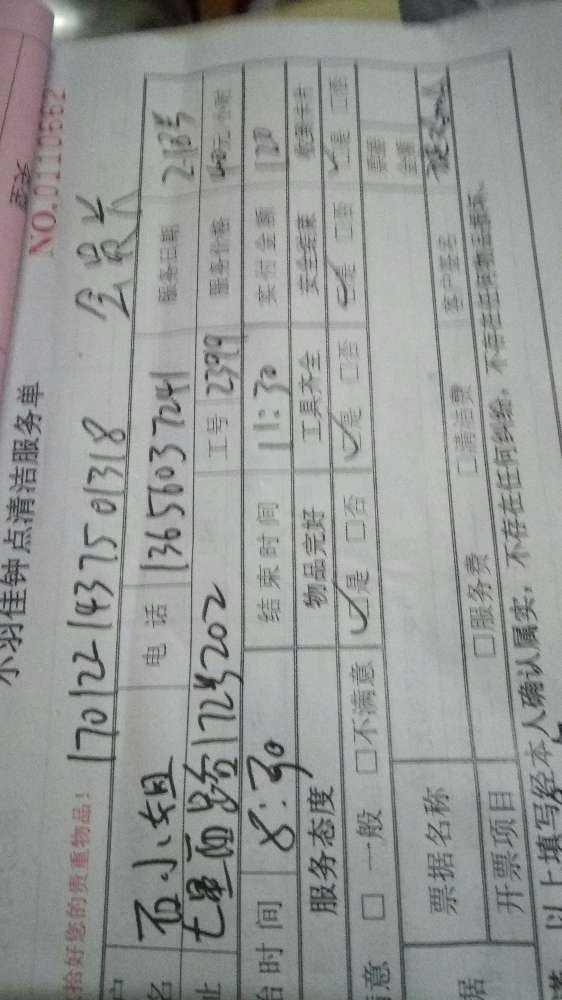 小羽佳钟点清洁服务单
NO.0110552
拾好您的贵重物品!
1701221437501318 会员卡
户名 石小姐 电话 13656037241 服务日期 2.18号
址 七星西路172号202 工号 2399 服务价格 40元/小时
始时间 8:30 结束时间 11:30 实付金额 120
服务态度 物品完好 工具齐全 安全结束 收到卡片
意 □ 一般 □不满意 ☑是 □否 ☑是 □否 ☑是 □否 ☑是 □否
据 票据名称 票据金额
开票项目 □服务费 □清洁费 客户签名
以上填写经本人确认属实,不存在任何纠纷,不存在任何物品损坏。